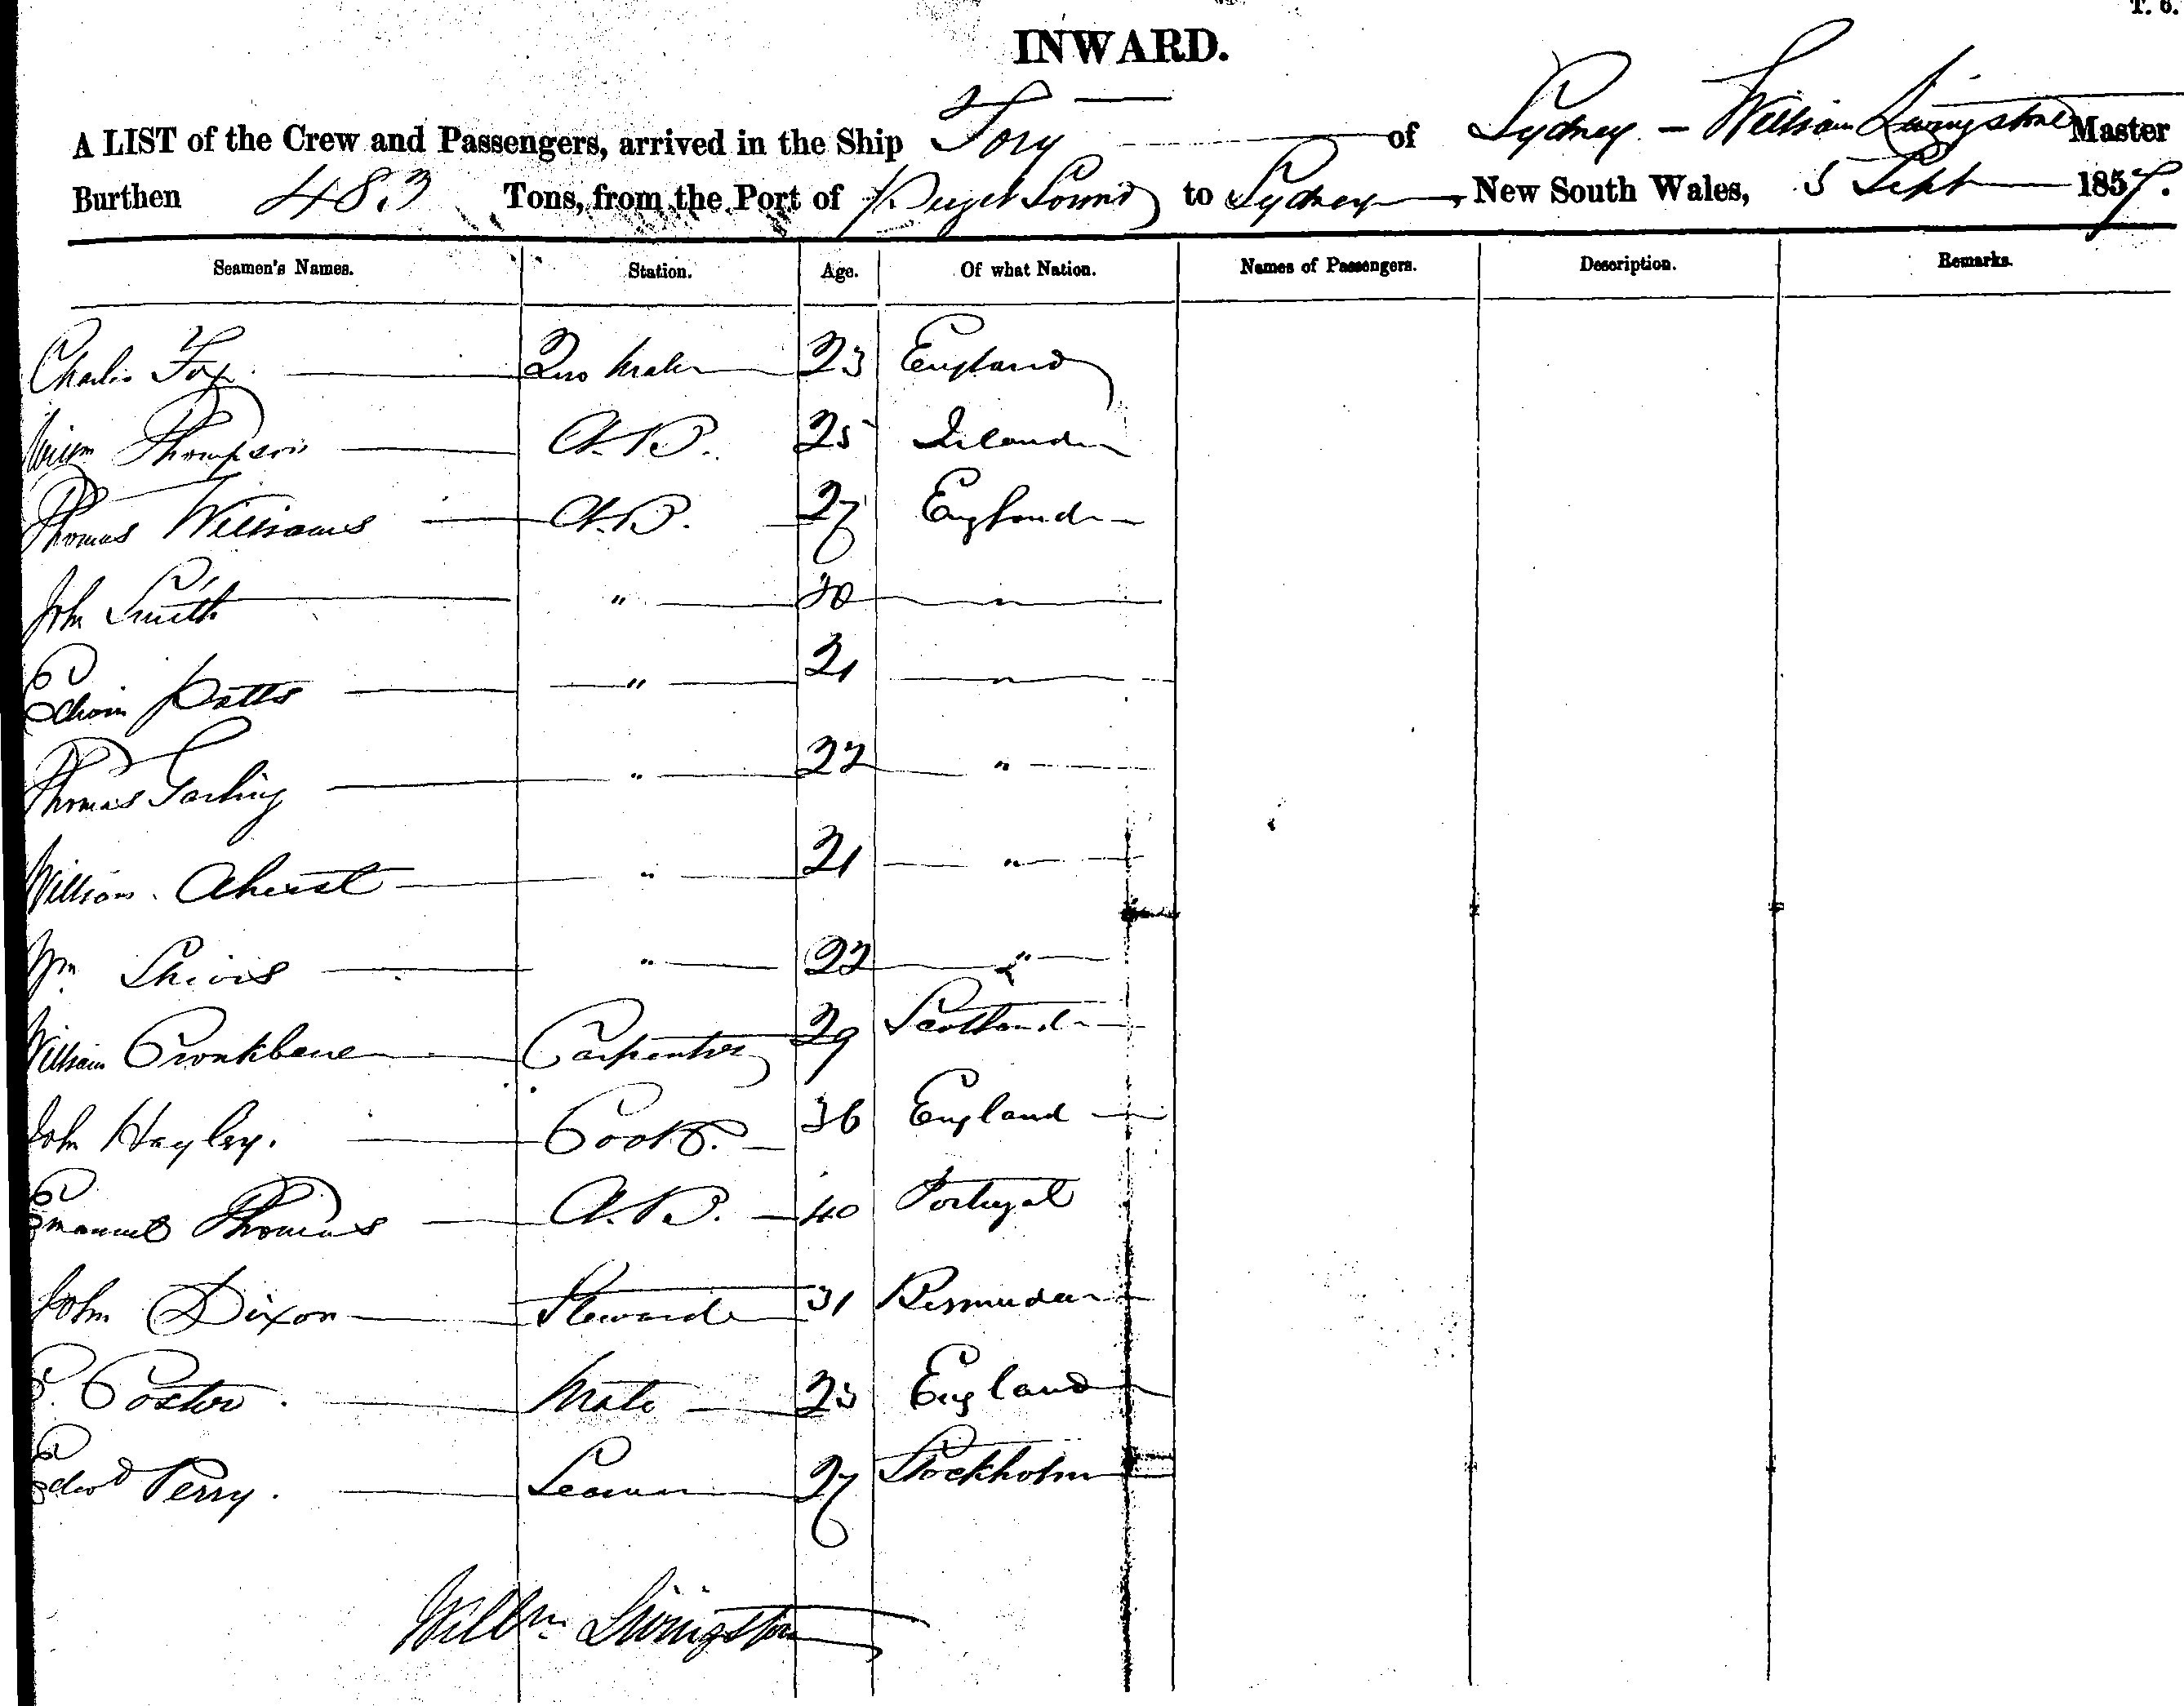 T. 6.
INWARD.
A LIST of the Crew and Passengers, arrived in the Ship Tory of Sydney - William Livingstone Master
Burthen 483 Tons, from the Port of Puget Sound to Sydney New South Wales, 5 Sept 1857.
Seamen's Names. Station. Age. Of what Nation. Names of Passengers. Description. Remarks.
Charles Fox. 23 England
Thompson A.B. 25 Ireland
Thomas Williams A.B. 27 England
John Smith " 20 "
Edwin Potts " 21 "
Thomas " 22 "
William " 21 "
Wm " 22 "
William Carpenter 29 Scotland
John Hayley. Cook. 36 England
Emanuel Thomas A.B. 40 Portugal
John Dixon Steward 31 Bermuda
Mate 23 England
Edwd Perry. Seaman 27 Stockholm
Willm Livingston